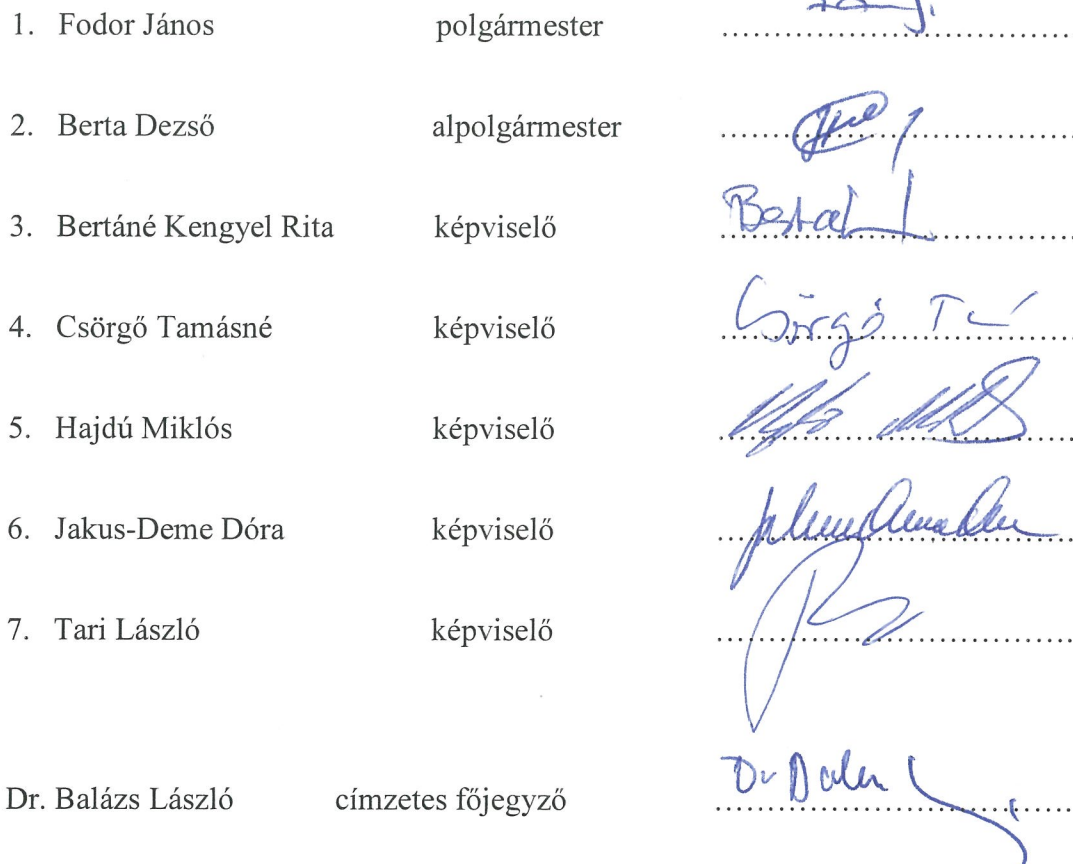 1. Fodor János polgármester ..............................
2. Berta Dezső alpolgármester ..............................
3. Bertáné Kengyel Rita képviselő ..............................
4. Csörgő Tamásné képviselő Csörgő T
5. Hajdú Miklós képviselő ..............................
6. Jakus-Deme Dóra képviselő ..............................
7. Tari László képviselő ..............................
Dr. Balázs László címzetes főjegyző Dr